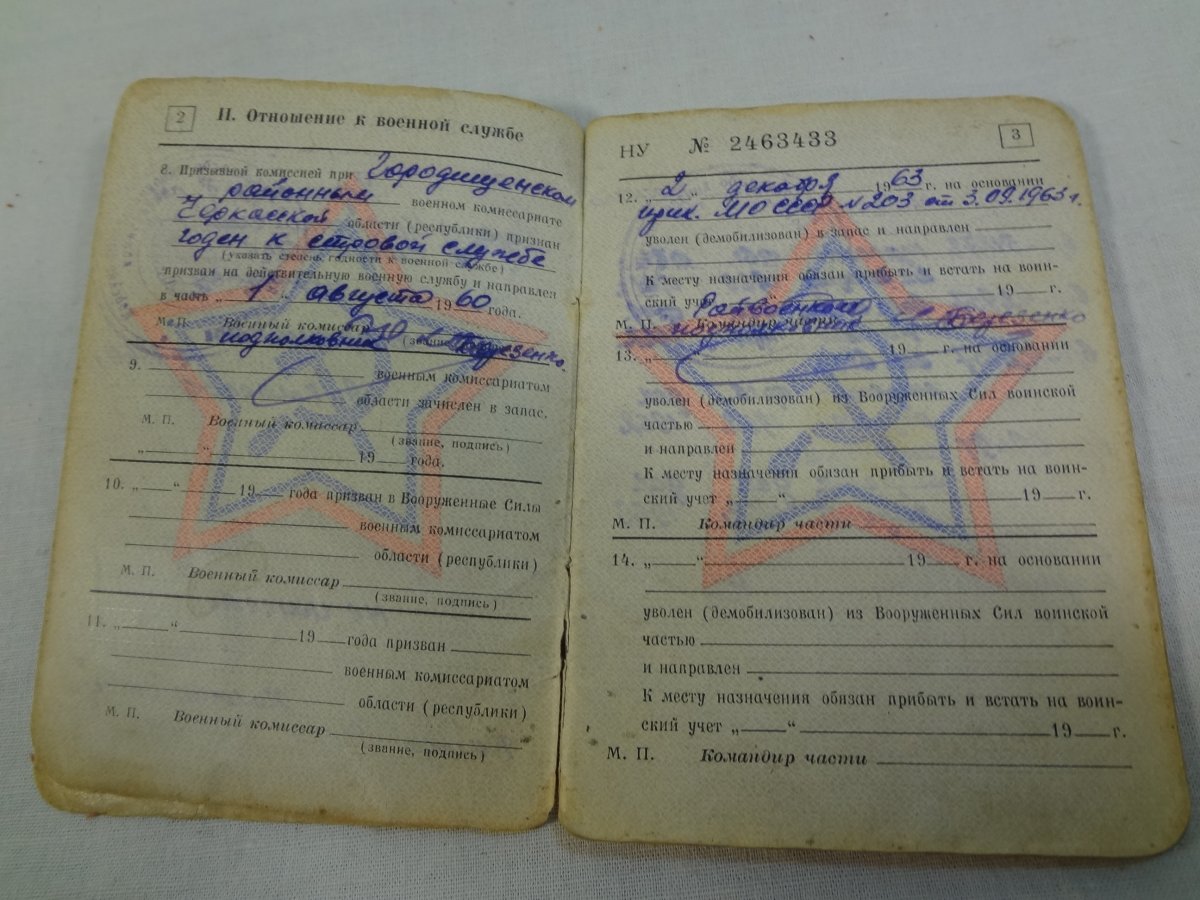 2
II. Отношение к военной службе
8. Призывной комиссией при Городищенском
районным военном комиссариате
Черкасской области (республики) признан
годен к строевой службе
(указать степень годности к военной службе)
призван на действительную военную службу и направлен
в часть „ 1 “ августа 1960 года.
М. П. Военный комиссар
подполковник (звание,
9. военным комиссариатом
области зачислен в запас.
М. П. Военный комиссар
(звание, подпись)
„ “ 19 года.
10. „ “ 19 года призван в Вооруженные Силы
военным комиссариатом
области (республики)
М. П. Военный комиссар
(звание, подпись)
11. „ “ 19 года призван
военным комиссариатом
области (республики)
М. П. Военный комиссар
(звание, подпись)
НУ № 2463433
3
12. „ 2 “ декабря 1963 г. на основании
прик. МО СССР №203 от 3.09.1963 г.
уволен (демобилизован) в запас и направлен
К месту назначения обязан прибыть и встать на воин-
ский учет 19 г.
М. П. Командир части
13. „ 19 г. на основании
уволен (демобилизован) из Вооруженных Сил воинской
частью
и направлен
К месту назначения обязан прибыть и встать на воин-
ский учет „ “ 19 г.
М. П. Командир части
14. „ “ 19 г. на основании
уволен (демобилизован) из Вооруженных Сил воинской
частью
и направлен
К месту назначения обязан прибыть и встать на воин-
ский учет „ “ 19 г.
М. П. Командир части